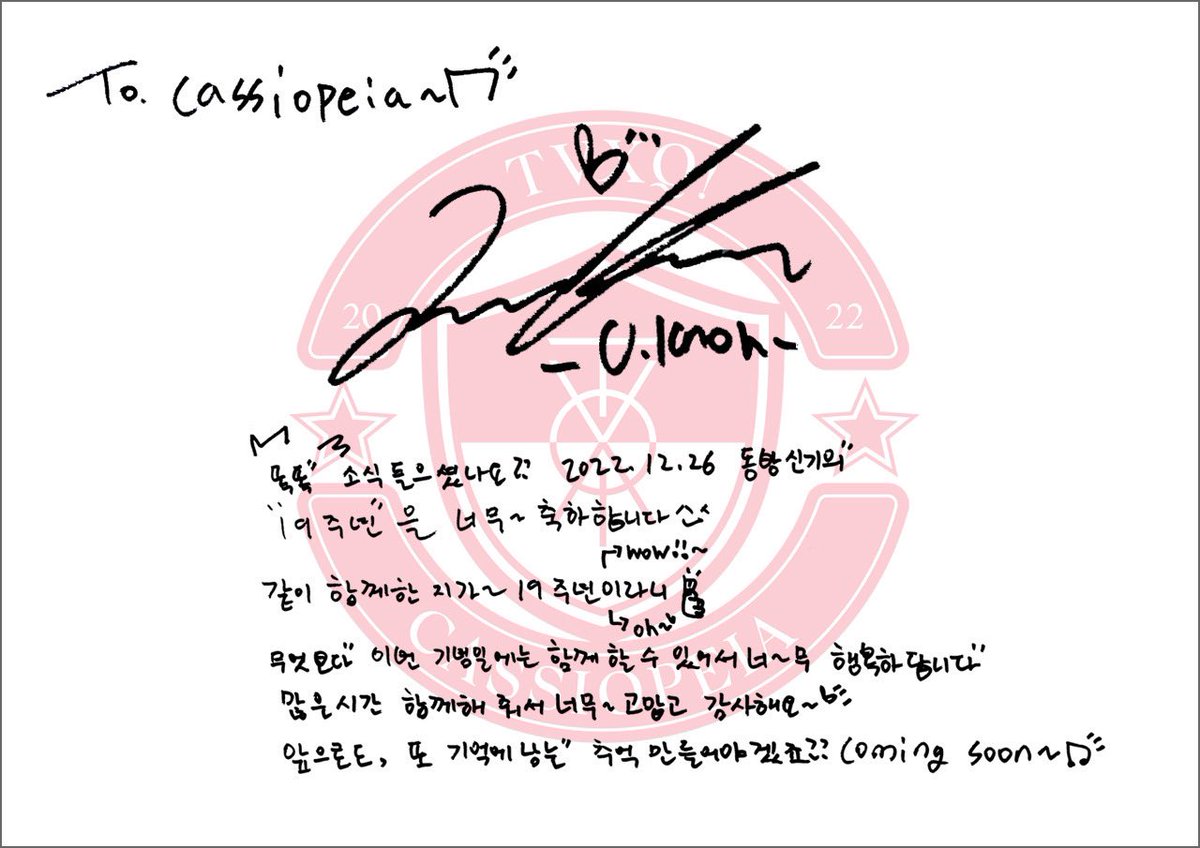 To. Cassiopeia~♬
TVXQ!
20 22
- U.Know -
똑똑" 소식 들으셨나요?? 2022.12.26 동방신기의"
"19주년"을 너무~ 축하합니다 ^^
wow!!~
같이 함께한 지가~ 19주년이라니
oh~
무엇보다" 이번 기념일에는 함께 할 수 있어서 너~무 행복하답니다"
많은시간 함께해 줘서 너무~ 고맙고 감사해요~
앞으로도, 또 기억에 남는" 추억 만들어야겠죠?? Coming soon~♬
CASSIOPEIA